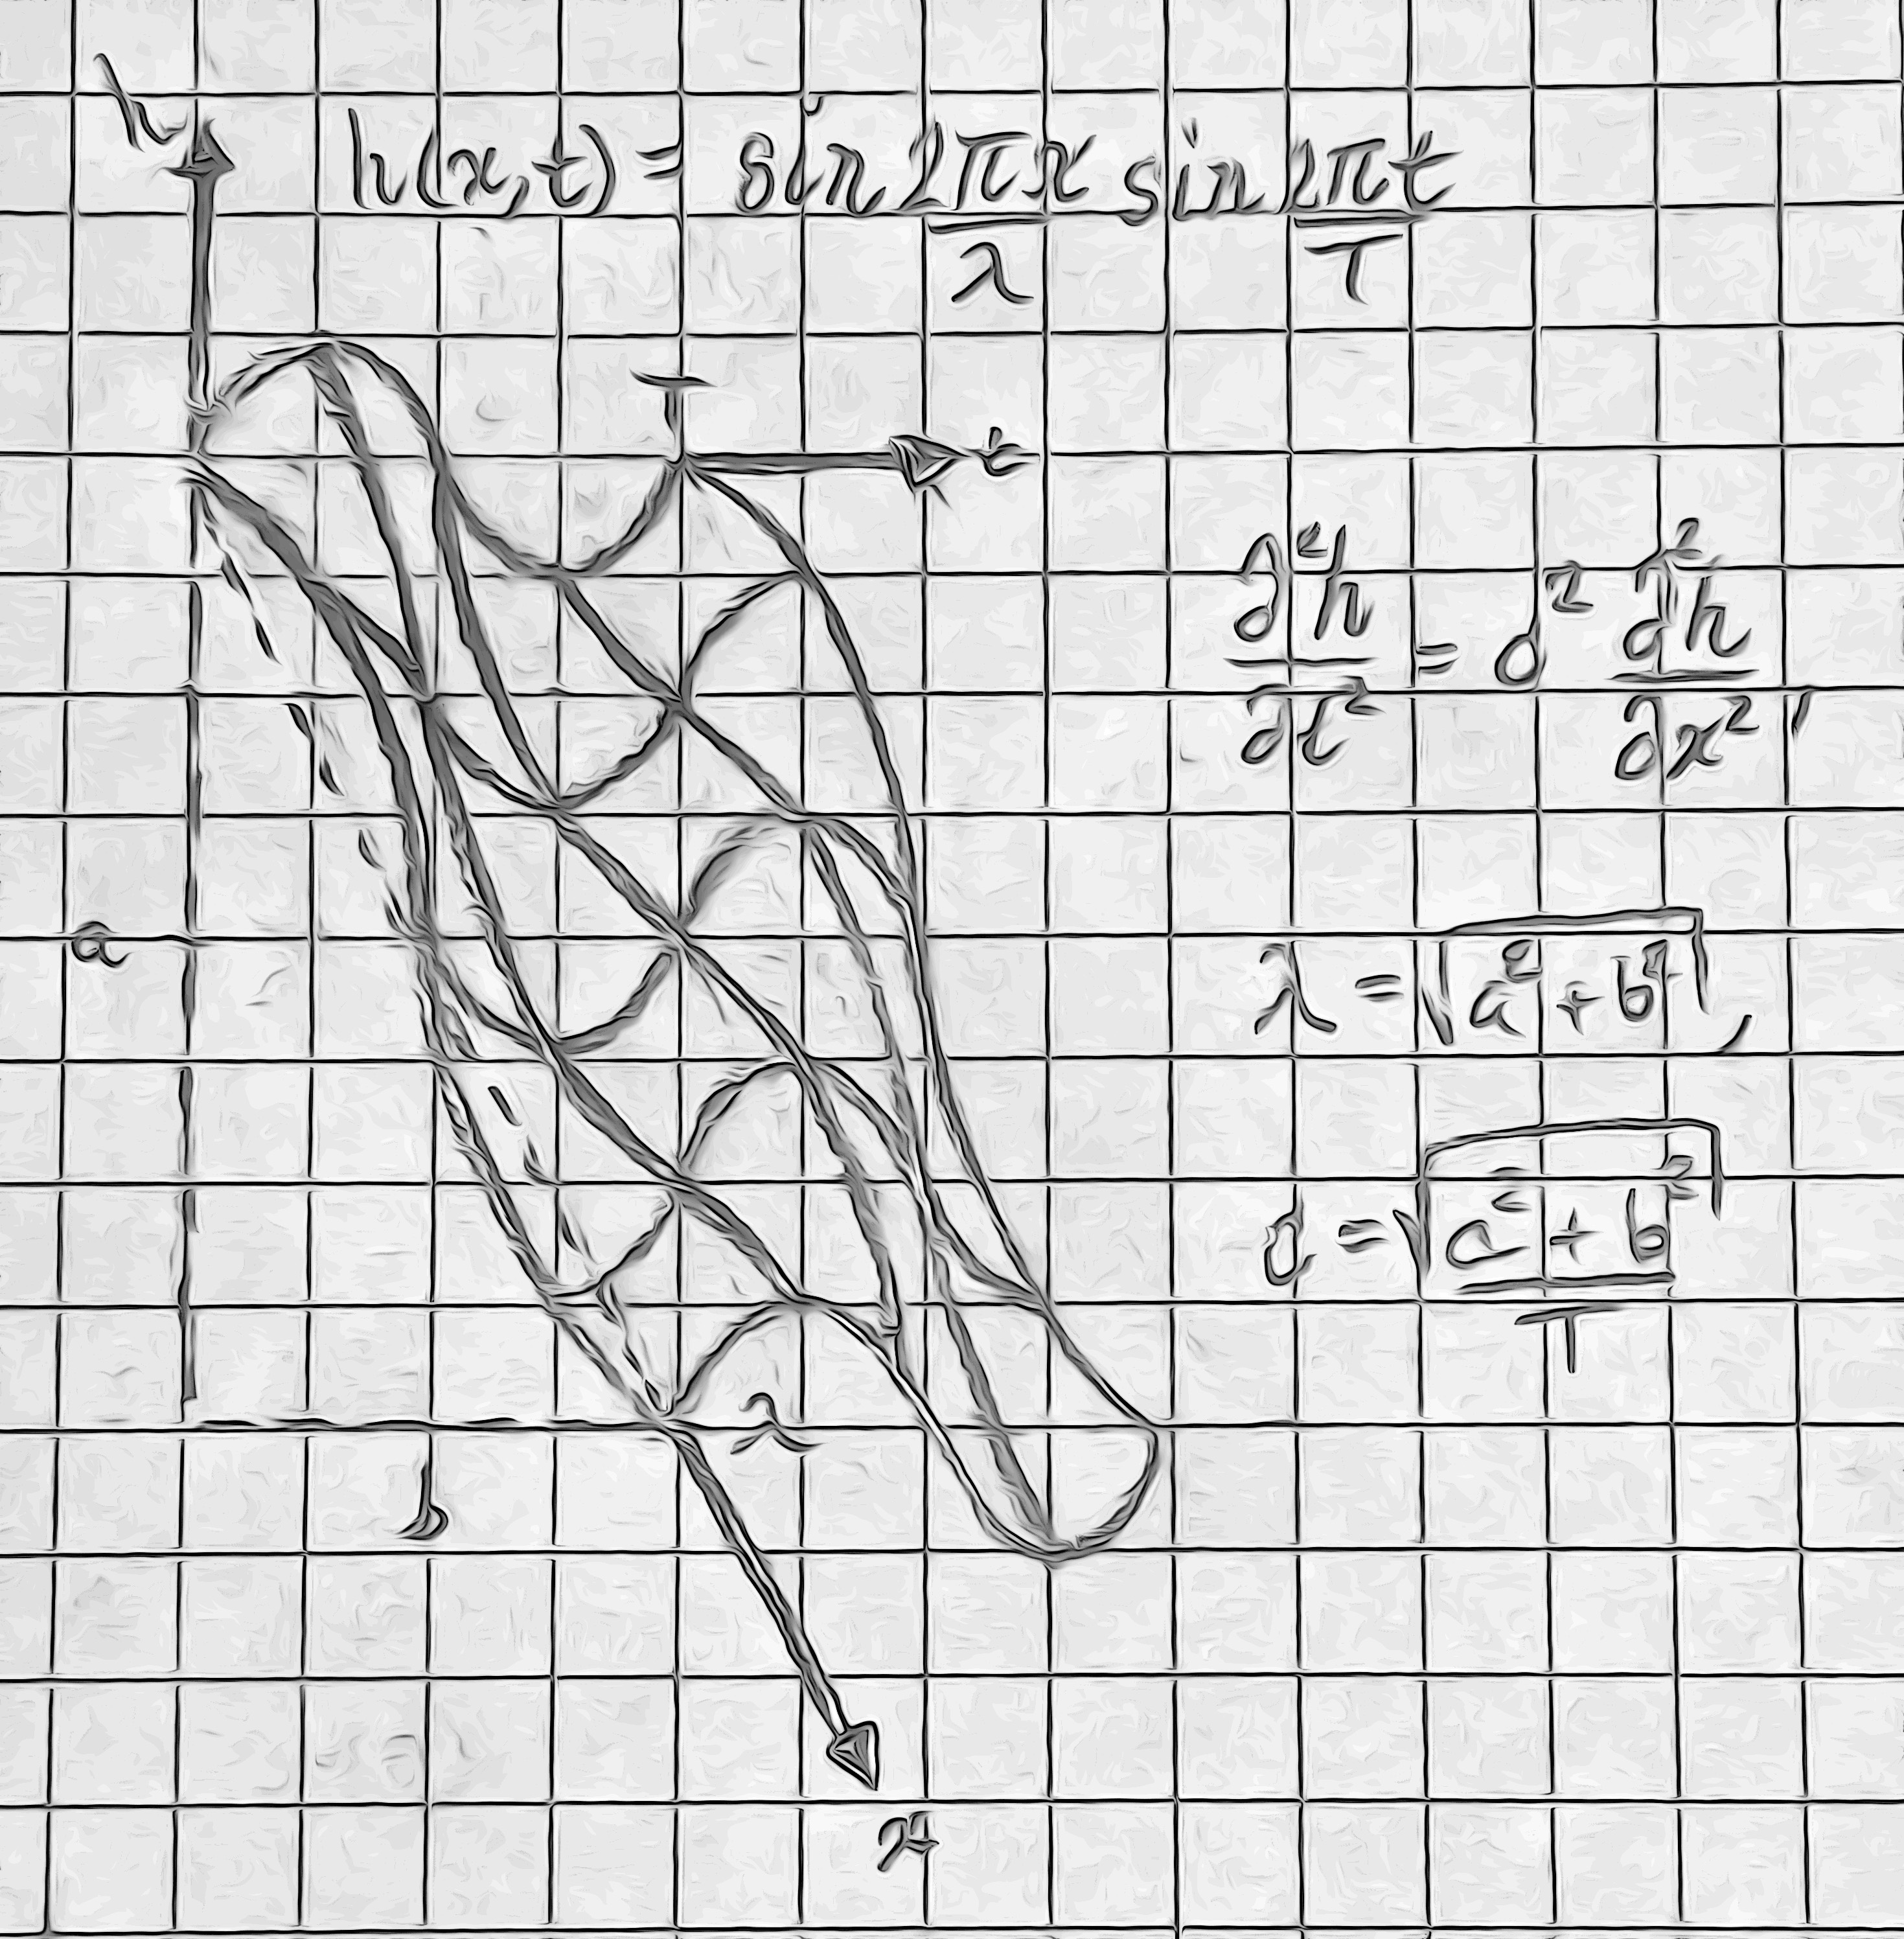 h
h(x,t) = sin 2πx/λ sin 2πt/T
T
t
∂²h/∂t² = d² ∂²h/∂x² ,
a
λ = √(a² + b²) ,
d = √(a² + b²)/T
λ
b
x